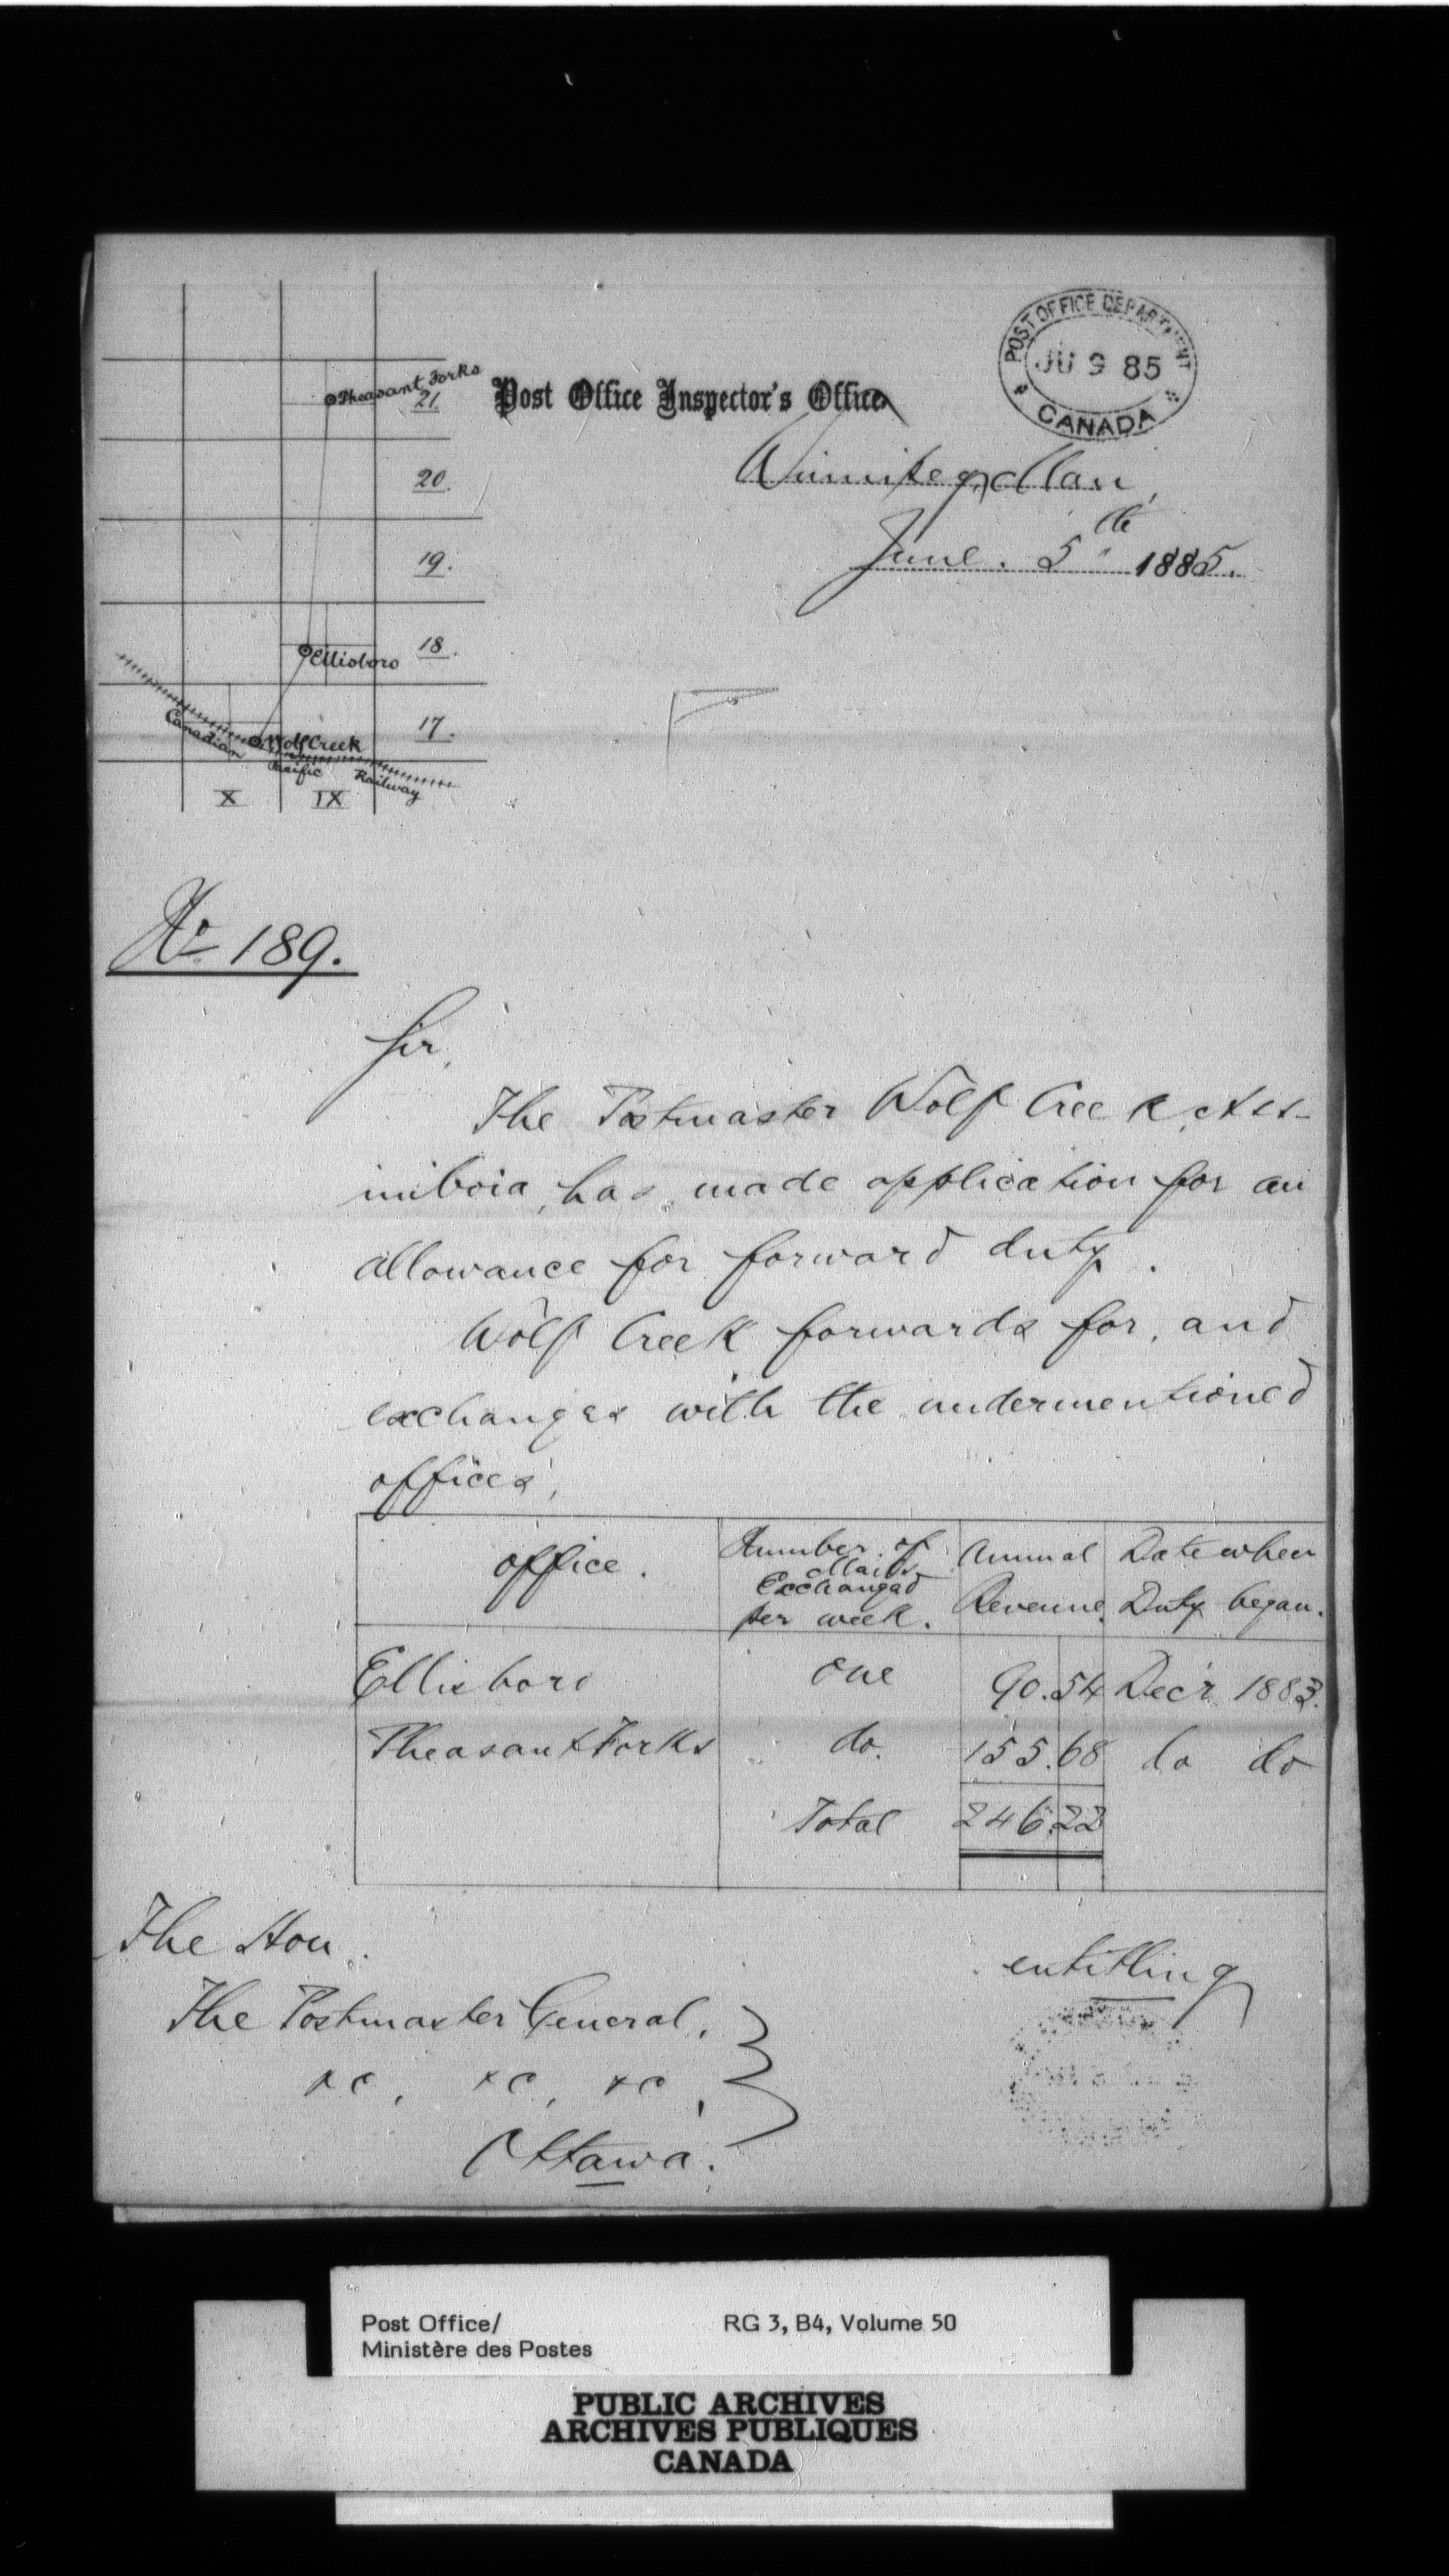 POST OFFICE DEPARTMENT
JU 9 85
CANADA
Pheasant Forks
21.
20.
19.
18.
Ellisboro
17.
Wolf Creek
Canadian Pacific Railway
X IX
Post Office Inspector's Office
Winnipeg, Man,
June. 5th 1885.
No 189.
Sir,
The Postmaster Wolf Creek, Ass-
iniboia, has made application for an
allowance for forward duty.
Wolf Creek forwards for, and
exchanges with the undermentioned
offices,
Office. Number of Mails Exchanged per week. Annual Revenue. Date when Duty began.
Ellisboro one 90.54 Dec'r 1883.
Pheasant Forks do. 155.68 do do
Total 246.22
The Hon.
The Postmaster General,
&c, &c, &c,
Ottawa.
entitling
Post Office/
Ministère des Postes
RG 3, B4, Volume 50
PUBLIC ARCHIVES
ARCHIVES PUBLIQUES
CANADA